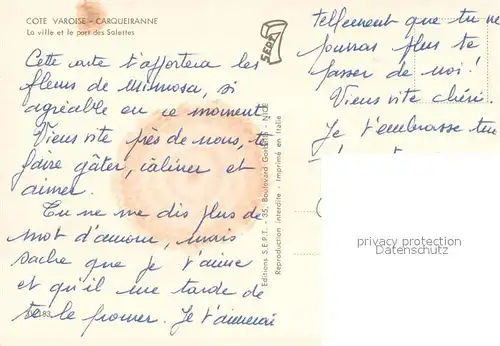 COTE VAROISE - CARQUEIRANNE
La ville et le port des Salettes
Cette carte t'apportera les
fleurs de Mimosa, si
agréable en ce moment
Viens vite près de nous, te
faire gâter, câliner et
aimer.
Tu ne me dis plus de
mot d'amour, mais
sache que je t'aime
et qu'il me tarde de
te le prouver. Je t'aimerai
83
S.E.P.T.
Editions S.E.P.T. - 35, Boulevard - NICE
Reproduction interdite - Imprimé en Italie
tellement que tu ne
pourras plus te
passer de moi!
Viens vite chéri.
Je t'embrasse
privacy protection
Datenschutz